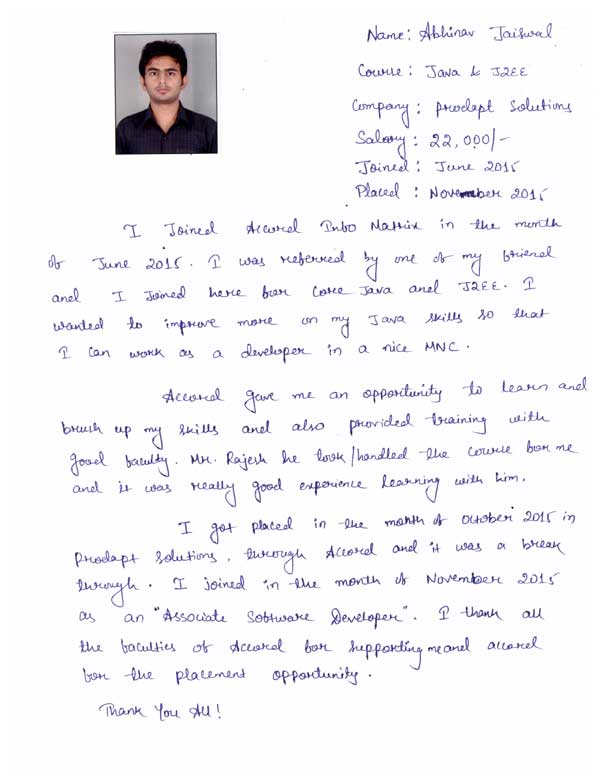 Name: Abhinav Jaiswal
Course: Java & J2EE
Company: Prodapt Solutions
Salary: 22,000/-
Joined: June 2015
Placed: November 2015
I Joined Accord Info Matrix in the month
of June 2015. I was referred by one of my friend
and I Joined here for Core Java and J2EE. I
wanted to improve more on my Java skills so that
I can work as a developer in a nice MNC.
Accord gave me an opportunity to learn and
brush up my skills and also provided training with
good faculty. Mr. Rajesh he took/handled the course for me
and it was really good experience learning with him.
I got placed in the month of October 2015 in
Prodapt Solutions, through Accord and it was a break
through. I joined in the month of November 2015
as an "Associate Software Developer". I thank all
the faculties of Accord for supporting me and accord
for the placement opportunity.
Thank You All!